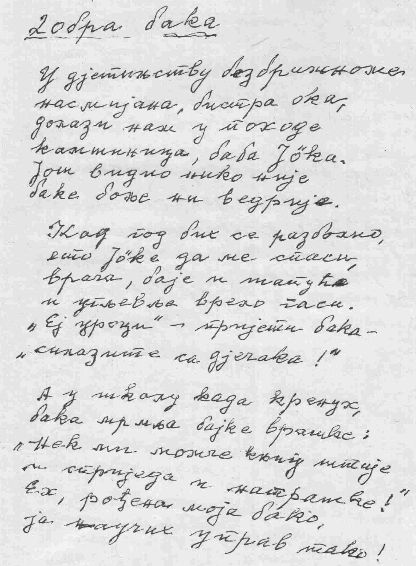 Добра бака
У дјетињству безбрижноме
насмијана, бистра ока,
долази нам у походе
комшиница, баба Јока.
Још видио нико није
баке боље ни ведрије.
Кад год бих се разболио,
ето Јоке да ме спаси,
врача, баје и шапуће
и угљевље врело гаси.
„Еј уроци" – пријети бака –
„силазите са дјечака!"
А у школу када кренух,
бака мрмља бајке врашке:
„Нек ми момче књигу штије
и сприједа и натрашке!"
Ех, рођена моја бако,
ја научих управ тако!